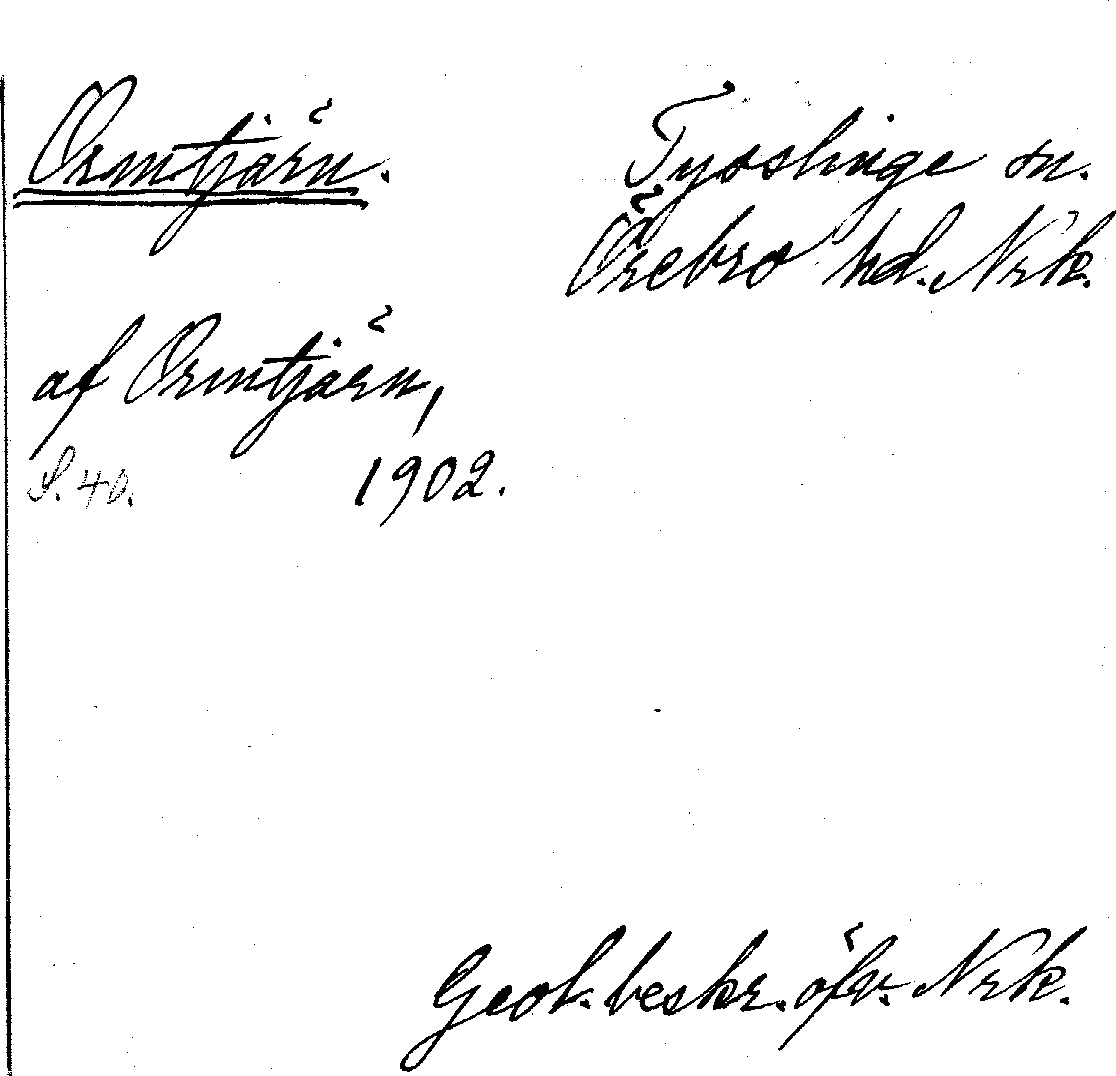 Ormtjärn.
Tysslinge sn.
Örebro hd. Nrk.
af Ormtjärn,
S. 40. 1902.
Geol. beskr. öfv. Nrk.